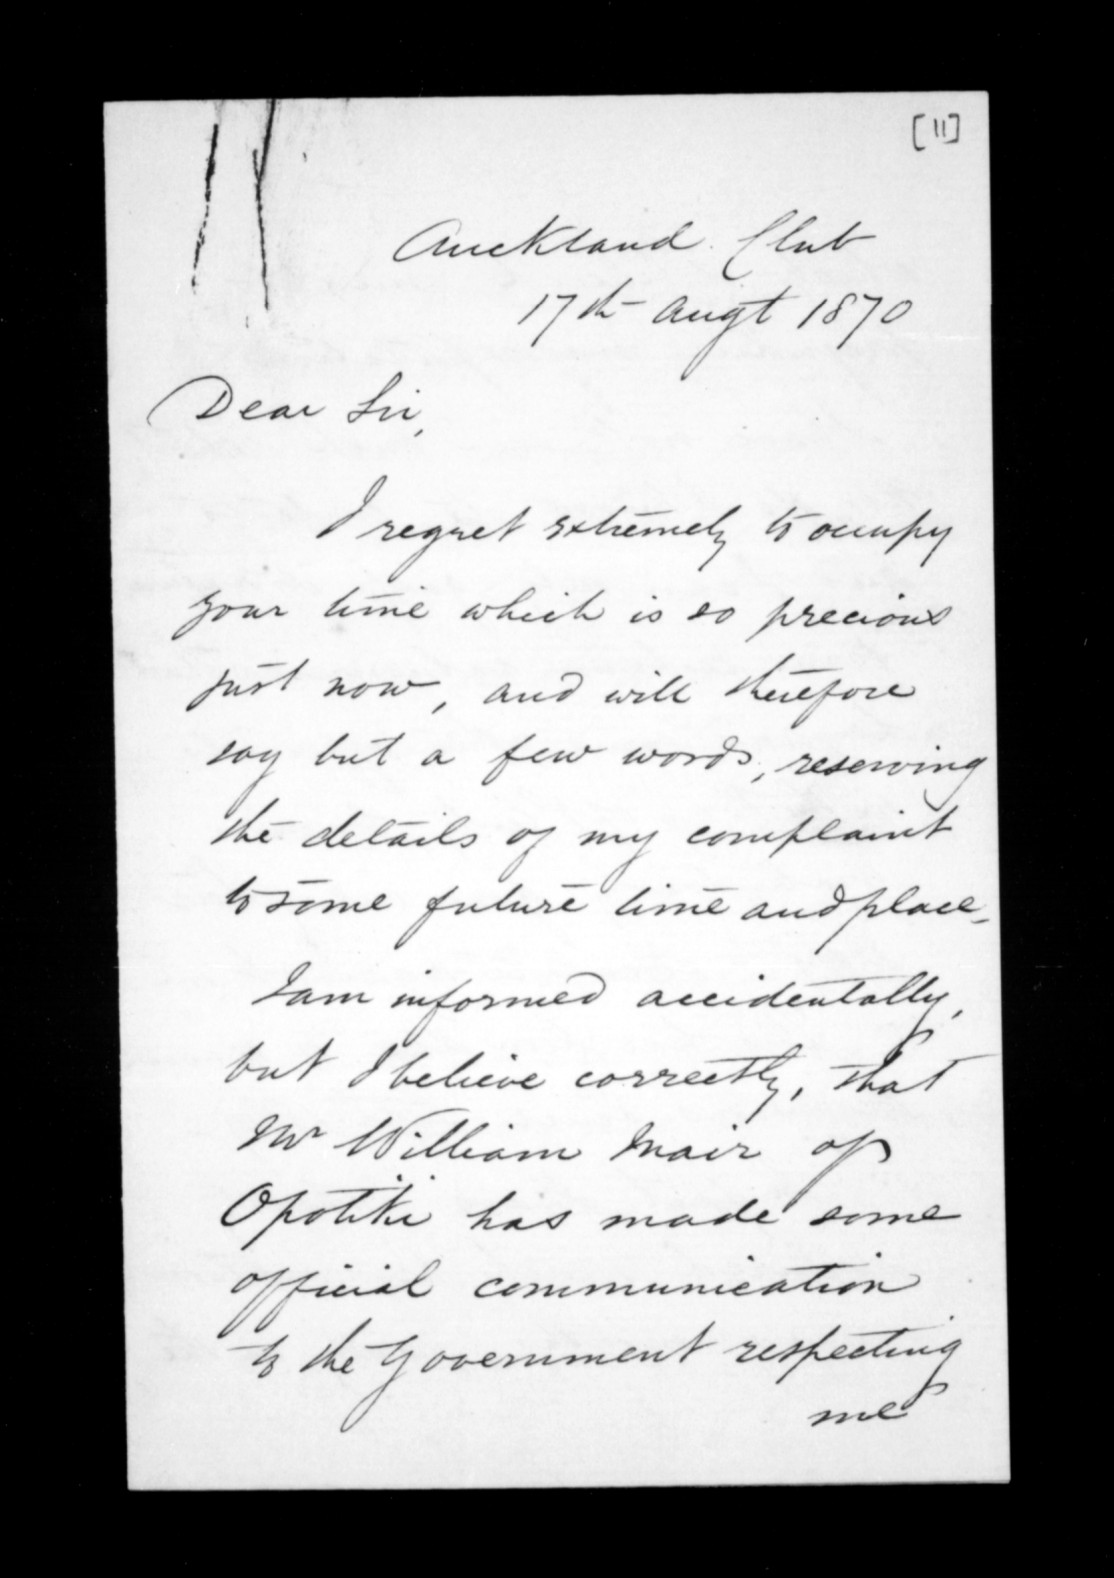 [11]
Auckland Club
17th Augt 1870
Dear Sir,
I regret extremely to occupy
your time which is so precious
just now, and will therefore
say but a few words, reserving
the details of my complaint
to some future time and place.
I am informed accidentally,
but I believe correctly, that
Mr William Mair of
Opotiki has made some
official communication
to the Government respecting
me